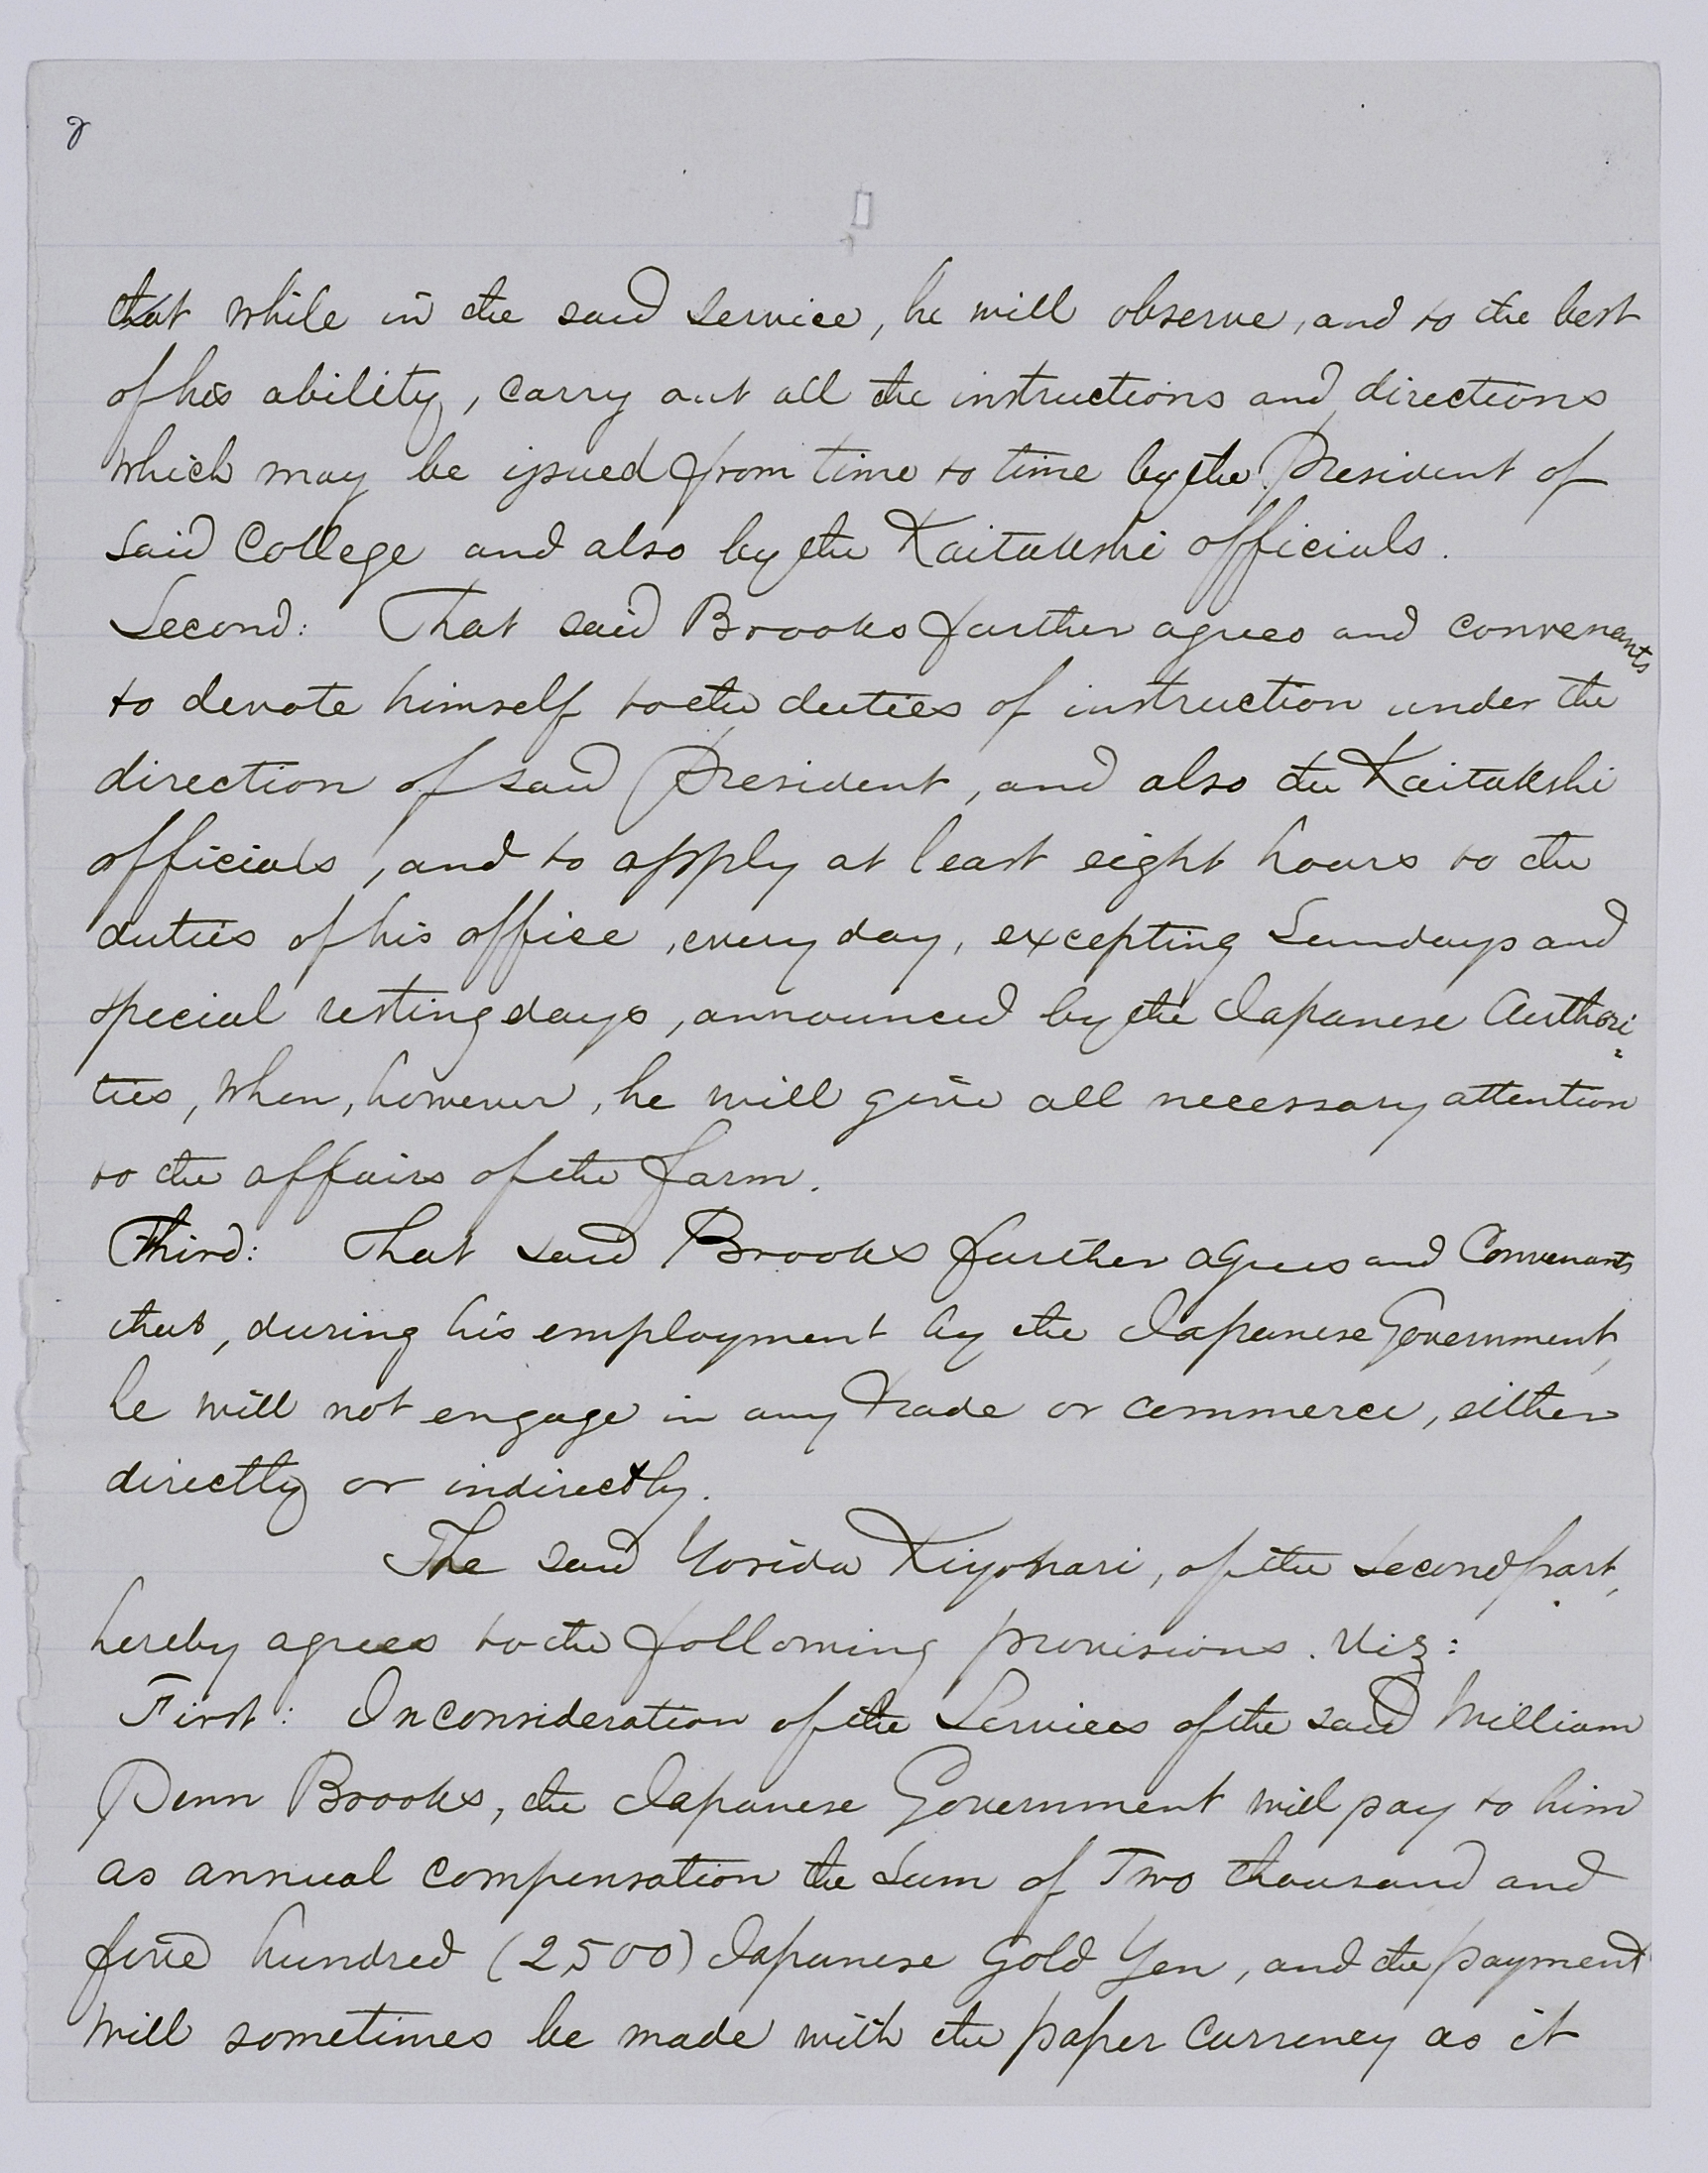 2
that while in the said service, he will observe, and to the best
of his ability, carry out all the instructions and directions
which may be issued from time to time by the President of
said College and also by the Kaitakshi officials.
Second: That said Brooks further agrees and convenants
to devote himself to the duties of instruction under the
direction of said President, and also the Kaitakshi
officials, and to apply at least eight hours to the
duties of his office, every day, excepting Sundays and
special resting days, announced by the Japanese Authori=
ties, when, however, he will give all necessary attention
to the affairs of the farm.
Third: That said Brooks further agrees and Convenants
that, during his employment by the Japanese Government,
he will not engage in any trade or commerce, either
directly or indirectly.
The said Yorida Kiyonari, of the second part,
hereby agrees to the following provisions. Viz:
First: In consideration of the Services of the said William
Penn Brooks, the Japanese Government will pay to him
as annual compensation the sum of Two thousand and
five hundred (2,500) Japanese Gold Yen, and the payment
will sometimes be made with the paper currency as it